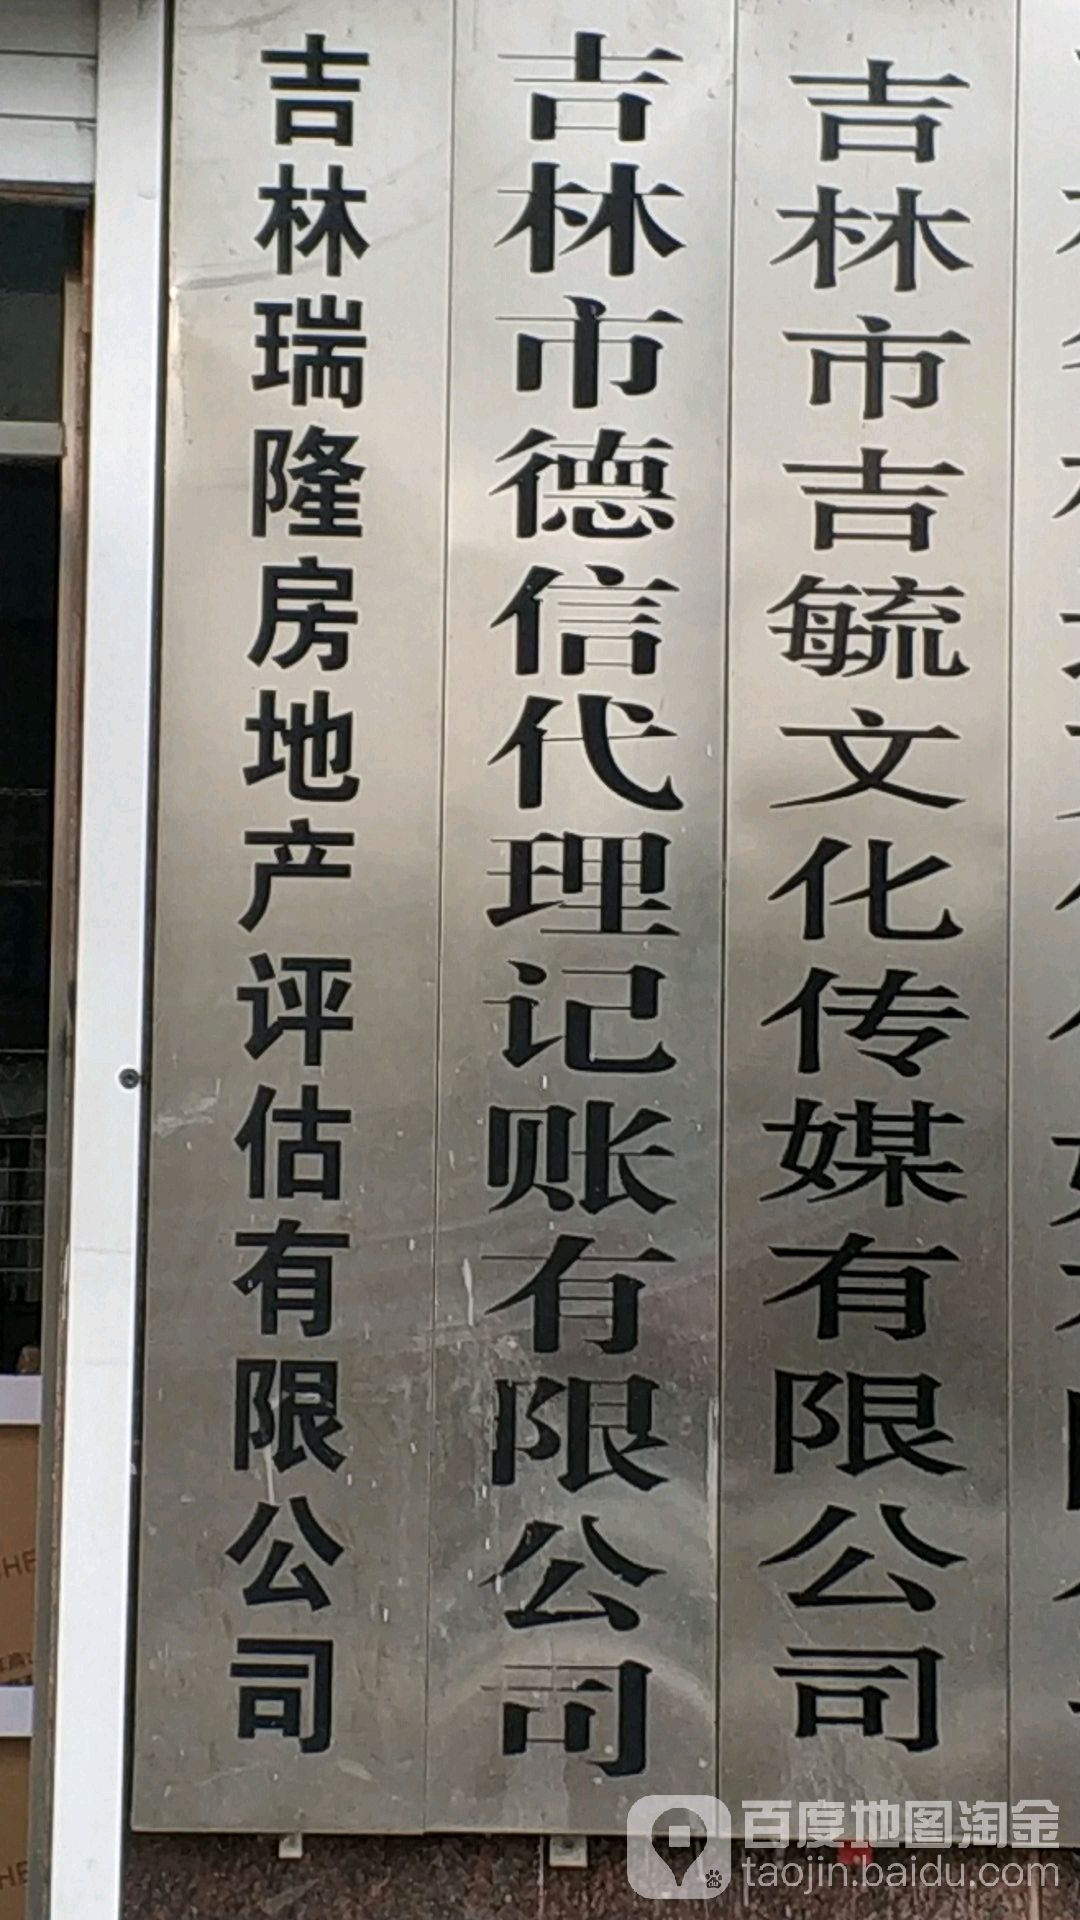 吉林瑞隆房地产评估有限公司
吉林市德信代理记账有限公司
吉林市吉毓文化传媒有限公司
百度地图淘金
taojin.baidu.com